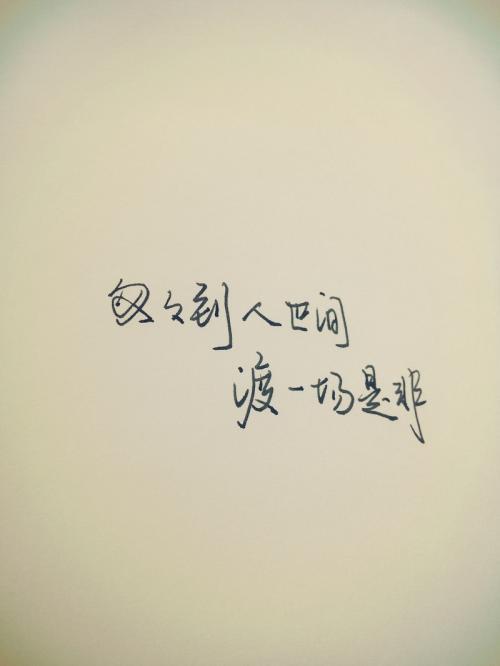 匆匆到人世间
渡一场是非